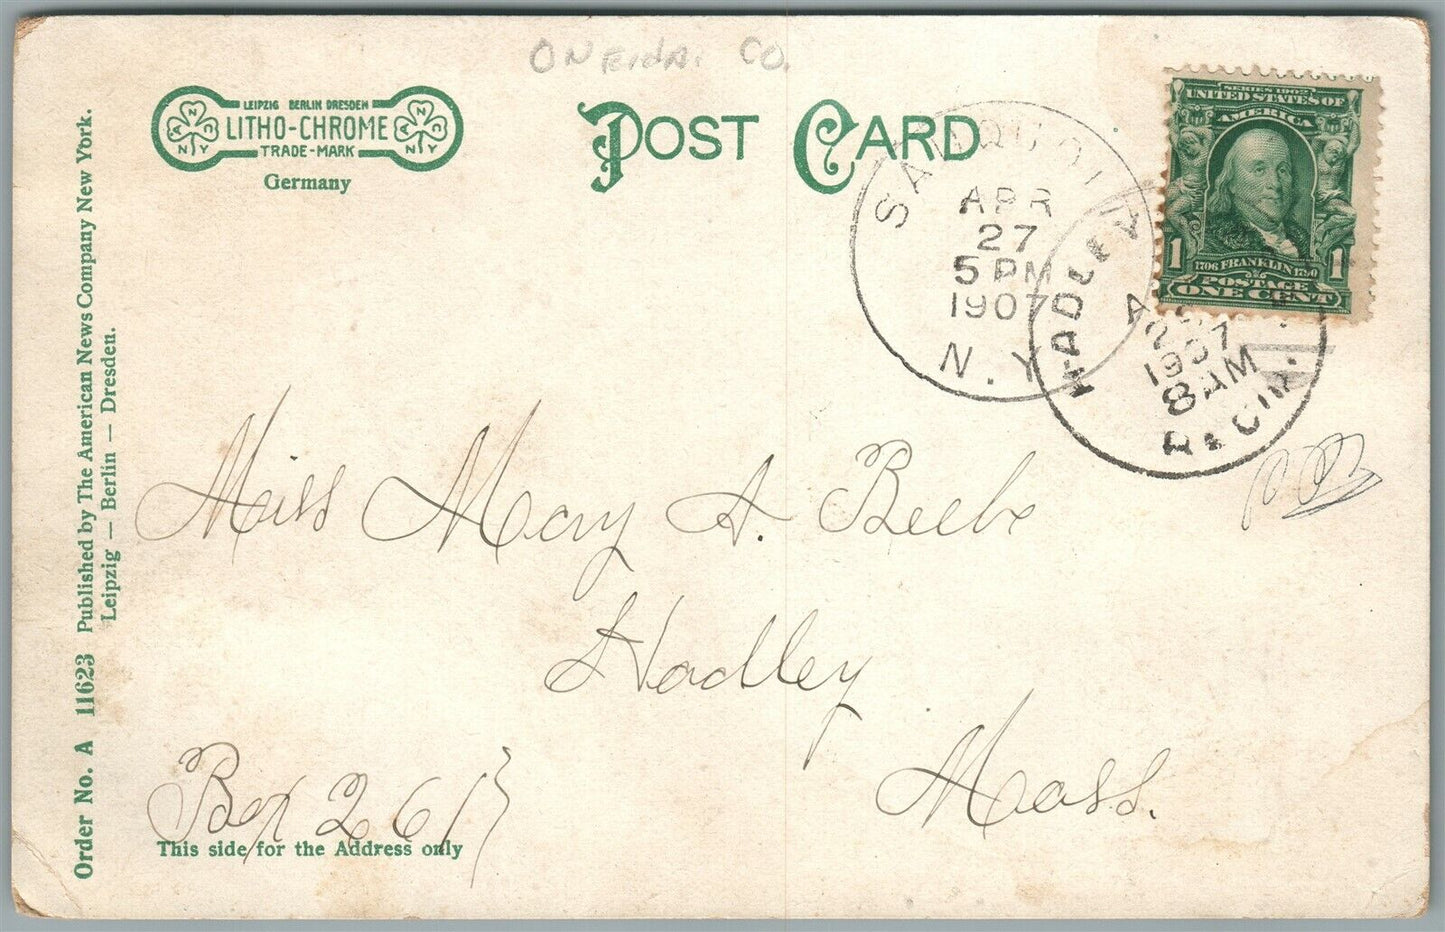 ONEIDA. CO.
LEIPZIG BERLIN DRESDEN
LITHO-CHROME
TRADE-MARK
Germany
POST CARD
SAUQUOIT
APR
27
5 PM
1907
N.Y.
HADLEY
1907
8 AM
SERIES 1902
UNITED STATES OF
AMERICA
1 1
1706 FRANKLIN 1790
POSTAGE
ONE CENT
Miss Mary A. Beebe
Hadley
Mass.
Box 261
This side for the Address only
Order No. A 11623 Published by The American News Company New York.
Leipzig — Berlin — Dresden.